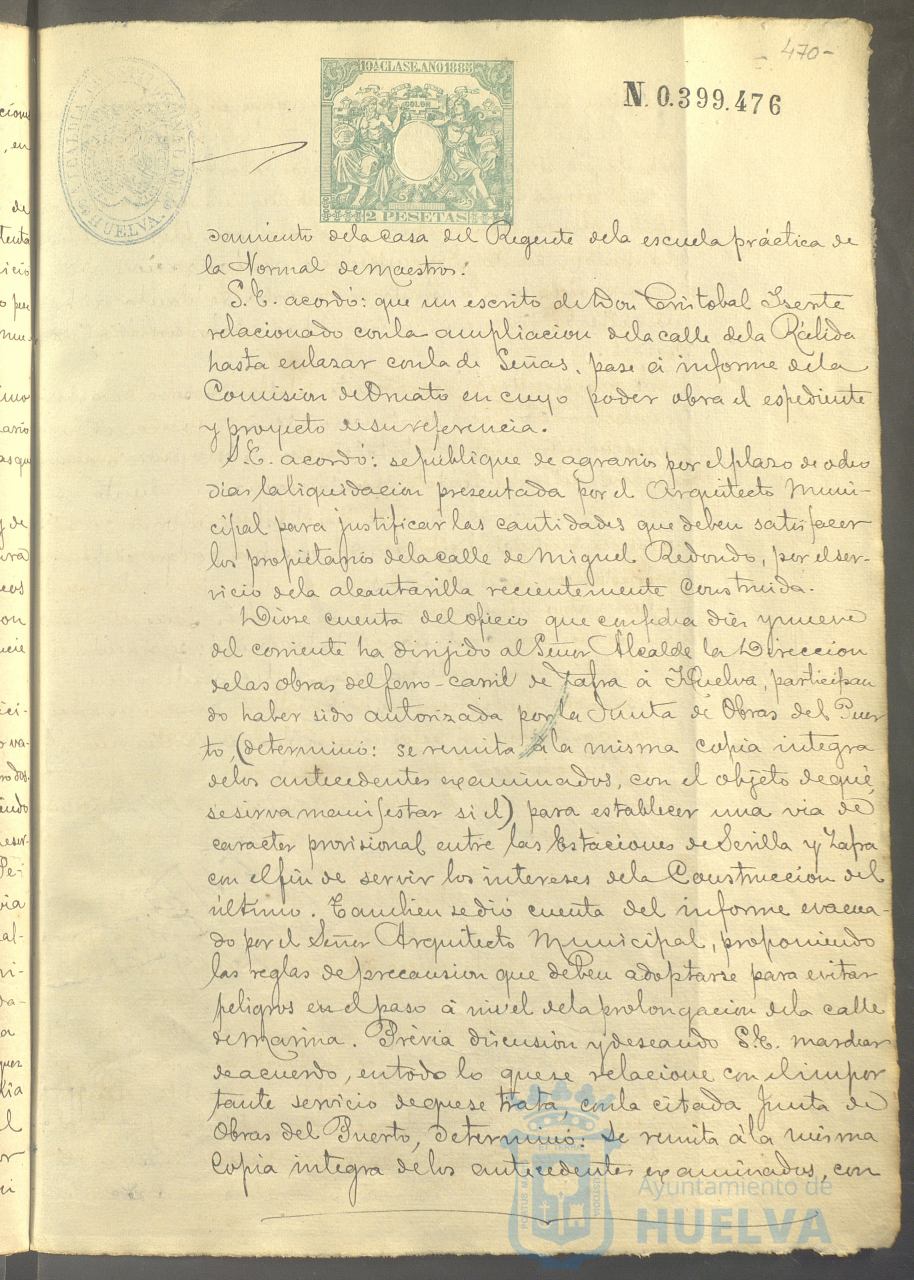 470-
10ª CLASE. AÑO 1885
COLON
2 PESETAS
N. 0.399.476
HUELVA.
damiento dela casa del Regente dela escuela práctica de
la Normal de Maestros.
S.E. acordó: que un escrito de Don Cristobal
relacionado conla ampliacion dela calle dela Rábida
hasta enlazar conla de Señas, pase á informe dela
Comision de Ornato en cuyo poder obra el espediente
y proyecto de su referencia.
S.E. acordó: se públique de agravios por el plazo de ocho
dias la liquidacion presentada por el Arquitecto Muni-
cipal para justificar las cantidades que deben satisfacer
los propietarios dela calle de Miguel Redondo, por el ser-
vicio dela alcantarilla recientemente Construida.
Diose cuenta del oficio que con fecha diez y nueve
del corriente ha dirijido al Señor Alcalde la Direccion
delas obras del ferro-carril de Zafra á Huelva, participan
do haber sido autorizada por la Junta de Obras del Puer
to, (determinó: se remita á la misma copia integra
delos antecedentes examinados, con el objeto de que
se sirva manifestar si el) para establecer una via de
caracter provisional entre las Estaciones de Sevilla y Zafra
con el fin de servir los intereses dela Construccion del
último. Tambien se dió cuenta del informe evacua-
do por el Señor Arquitecto Municipal, proponiendo
las reglas de precausion que deben adoptarse para evitar
peligros en el paso á nivel dela prolongacion dela calle
de Marina. Prévia discusion y deseando S.E. marchar
de acuerdo, en todo lo que se relacione con el impor
tante servicio de que se trata, conla citada Junta de
Obras del Puerto, determinó: se remita á la misma
Copia integra delos antecedentes examinados, con
Ayuntamiento de
HUELVA